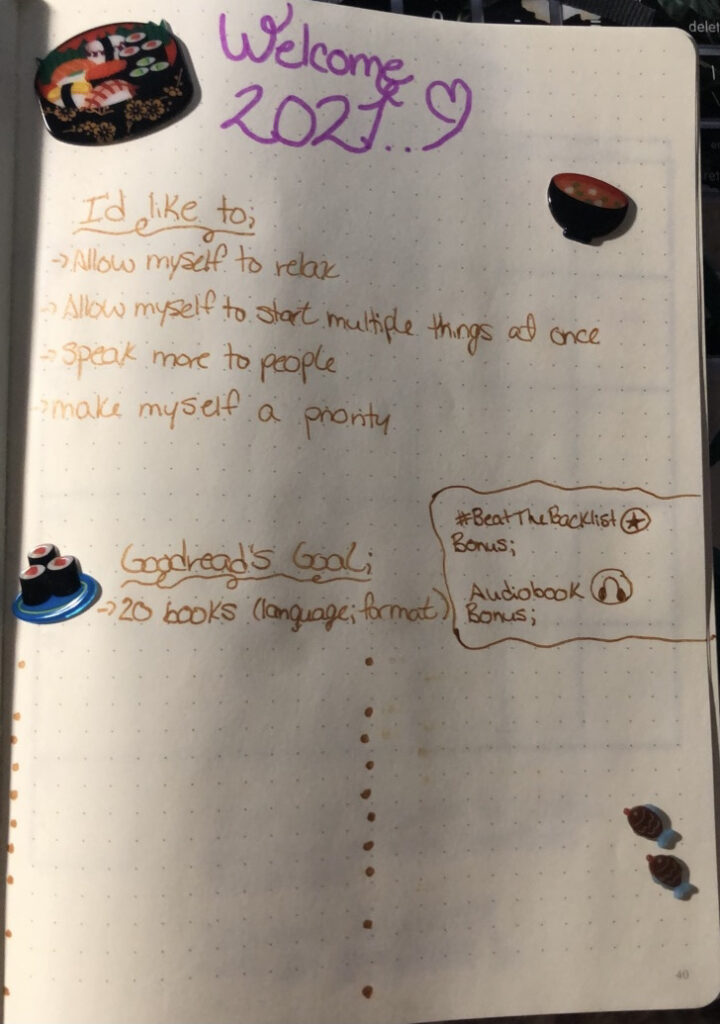 Welcome
2021..
I'd like to;
→Allow myself to relax
→Allow myself to start multiple things at once
→Speak more to people
→make myself a priority
#BeatTheBacklist
Bonus;
Audiobook
Bonus;
Goodread's Goal;
→20 books (language; format)
46
delet